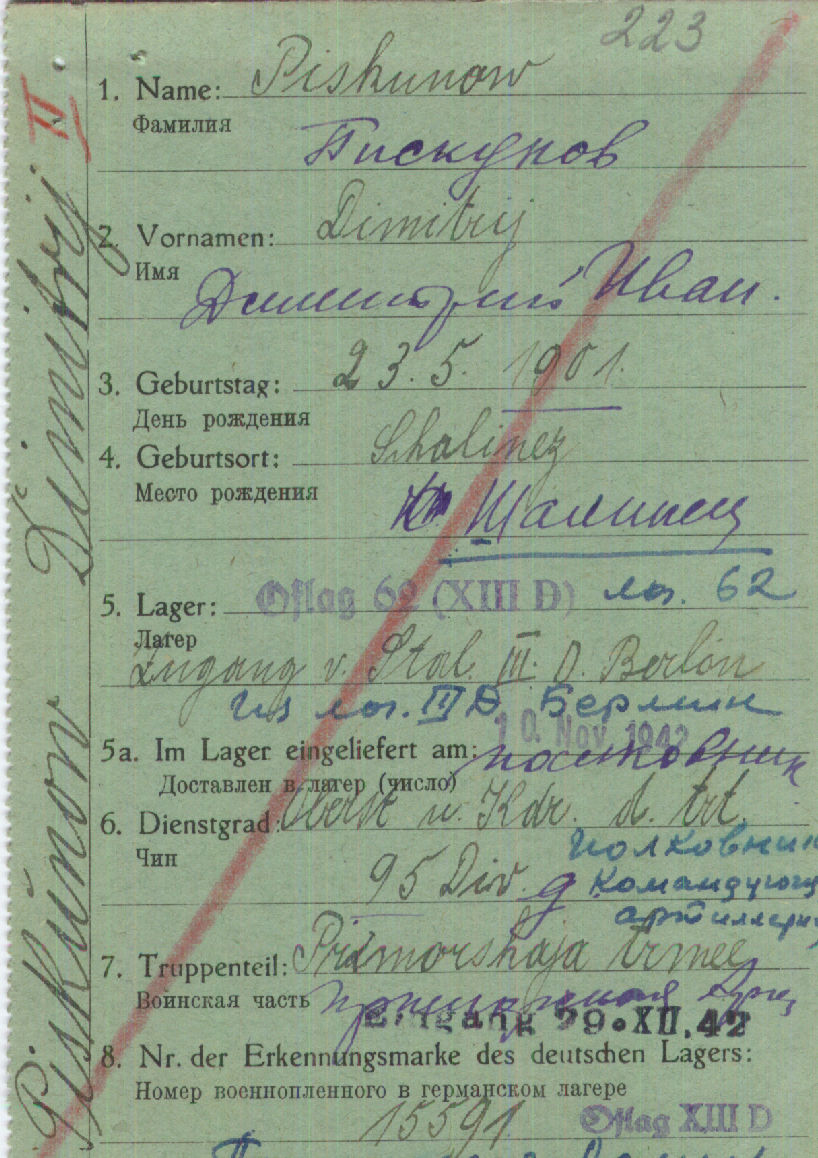 223
1. Name: Piskunow
Фамилия
Пискунов
2. Vornamen: Dimitrij
Имя
Дмитрий Иван.
3. Geburtstag: 23. 5. 1901.
День рождения
4. Geburtsort: Schalinez
Место рождения
Шалинец
5. Lager: Oflag 62 (XIII D) лаг. 62
Лагерь
Zugang v. Stal. III. D. Berlin
из лаг. III D. Берлин
10. Nov. 1942
5a. Im Lager eingeliefert am: полковник
Доставлен в лагер (число)
6. Dienstgrad: Oberst u. Kdr. d. Art.
Чин
полковник
95 Div. Командующ
артиллери
7. Truppenteil: Primorskaja Armee
Воинская часть Приморская
Eingang 29. XII. 42
8. Nr. der Erkennungsmarke des deutschen Lagers:
Номер военнопленного в германском лагере
15591
Oflag XIII D
Piskunow Dimitrij II.